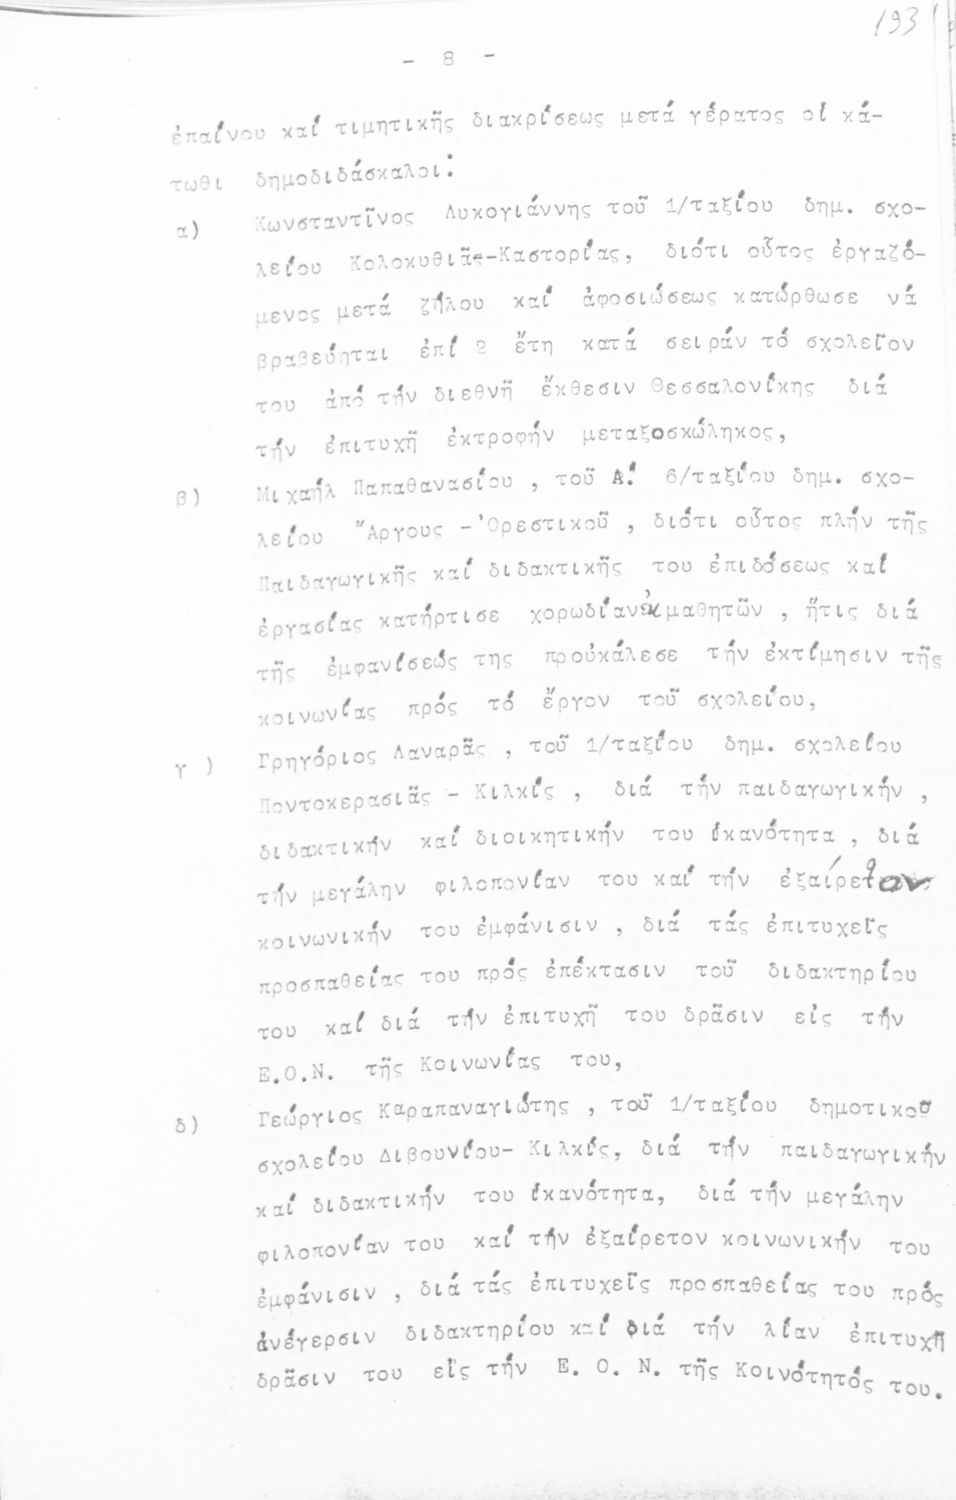 193
- 8 -
ἐπαίνου καί τιμητικῆς διακρίσεως μετά γέρατος οἱ κά-
τωθι δημοδιδάσκαλοι:
α) Κωνσταντῖνος Λυκογιάννης τοῦ 1/ταξίου δημ. σχο-
λείου Κολοκυθιᾶς-Καστορίας, διότι οὗτος ἐργαζό-
μενος μετά ζήλου καί ἀφοσιώσεως κατώρθωσε νά
βραβεύηται ἐπί 2 ἔτη κατά σειράν τό σχολεῖον
του ἀπό τήν διεθνῆ ἔκθεσιν Θεσσαλονίκης διά
τήν ἐπιτυχῆ ἐκτροφήν μεταξοσκώληκος,
β) Μιχαήλ Παπαθανασίου , τοῦ Α! 6/ταξίου δημ. σχο-
λείου "Αργους -'Ορεστικοῦ , διότι οὗτος πλήν τῆς
Παιδαγωγικῆς καί διδακτικῆς του ἐπιδόσεως καί
ἐργασίας κατήρτισε χορωδίαν ἐκ μαθητῶν , ἥτις διά
τῆς ἐμφανίσεώς της προὐκάλεσε τήν ἐκτίμησιν τῆς
κοινωνίας πρός τό ἔργον τοῦ σχολείου,
γ ) Γρηγόριος Λαναρᾶς , τοῦ 1/ταξίου δημ. σχολείου
Ποντοκερασιᾶς - Κιλκίς , διά τήν παιδαγωγικήν ,
διδακτικήν καί διοικητικήν του ἱκανότητα , διά
τήν μεγάλην φιλοπονίαν του καί τήν ἐξαίρετον
κοινωνικήν του ἐμφάνισιν , διά τάς ἐπιτυχεῖς
προσπαθείας του πρός ἐπέκτασιν τοῦ διδακτηρίου
του καί διά τήν ἐπιτυχῆ του δρᾶσιν εἰς τήν
Ε.Ο.Ν. τῆς Κοινωνίας του,
δ) Γεώργιος Καραπαναγιώτης , τοῦ 1/ταξίου δημοτικοῦ
σχολείου Διβουνίου- Κιλκίς, διά τήν παιδαγωγικήν
καί διδακτικήν του ἱκανότητα, διά τήν μεγάλην
φιλοπονίαν του καί τήν ἐξαίρετον κοινωνικήν του
ἐμφάνισιν , διά τάς ἐπιτυχεῖς προσπαθείας του πρός
ἀνέγερσιν διδακτηρίου καί διά τήν λίαν ἐπιτυχῆ
δρᾶσιν του εἰς τήν Ε. Ο. Ν. τῆς Κοινότητός του.